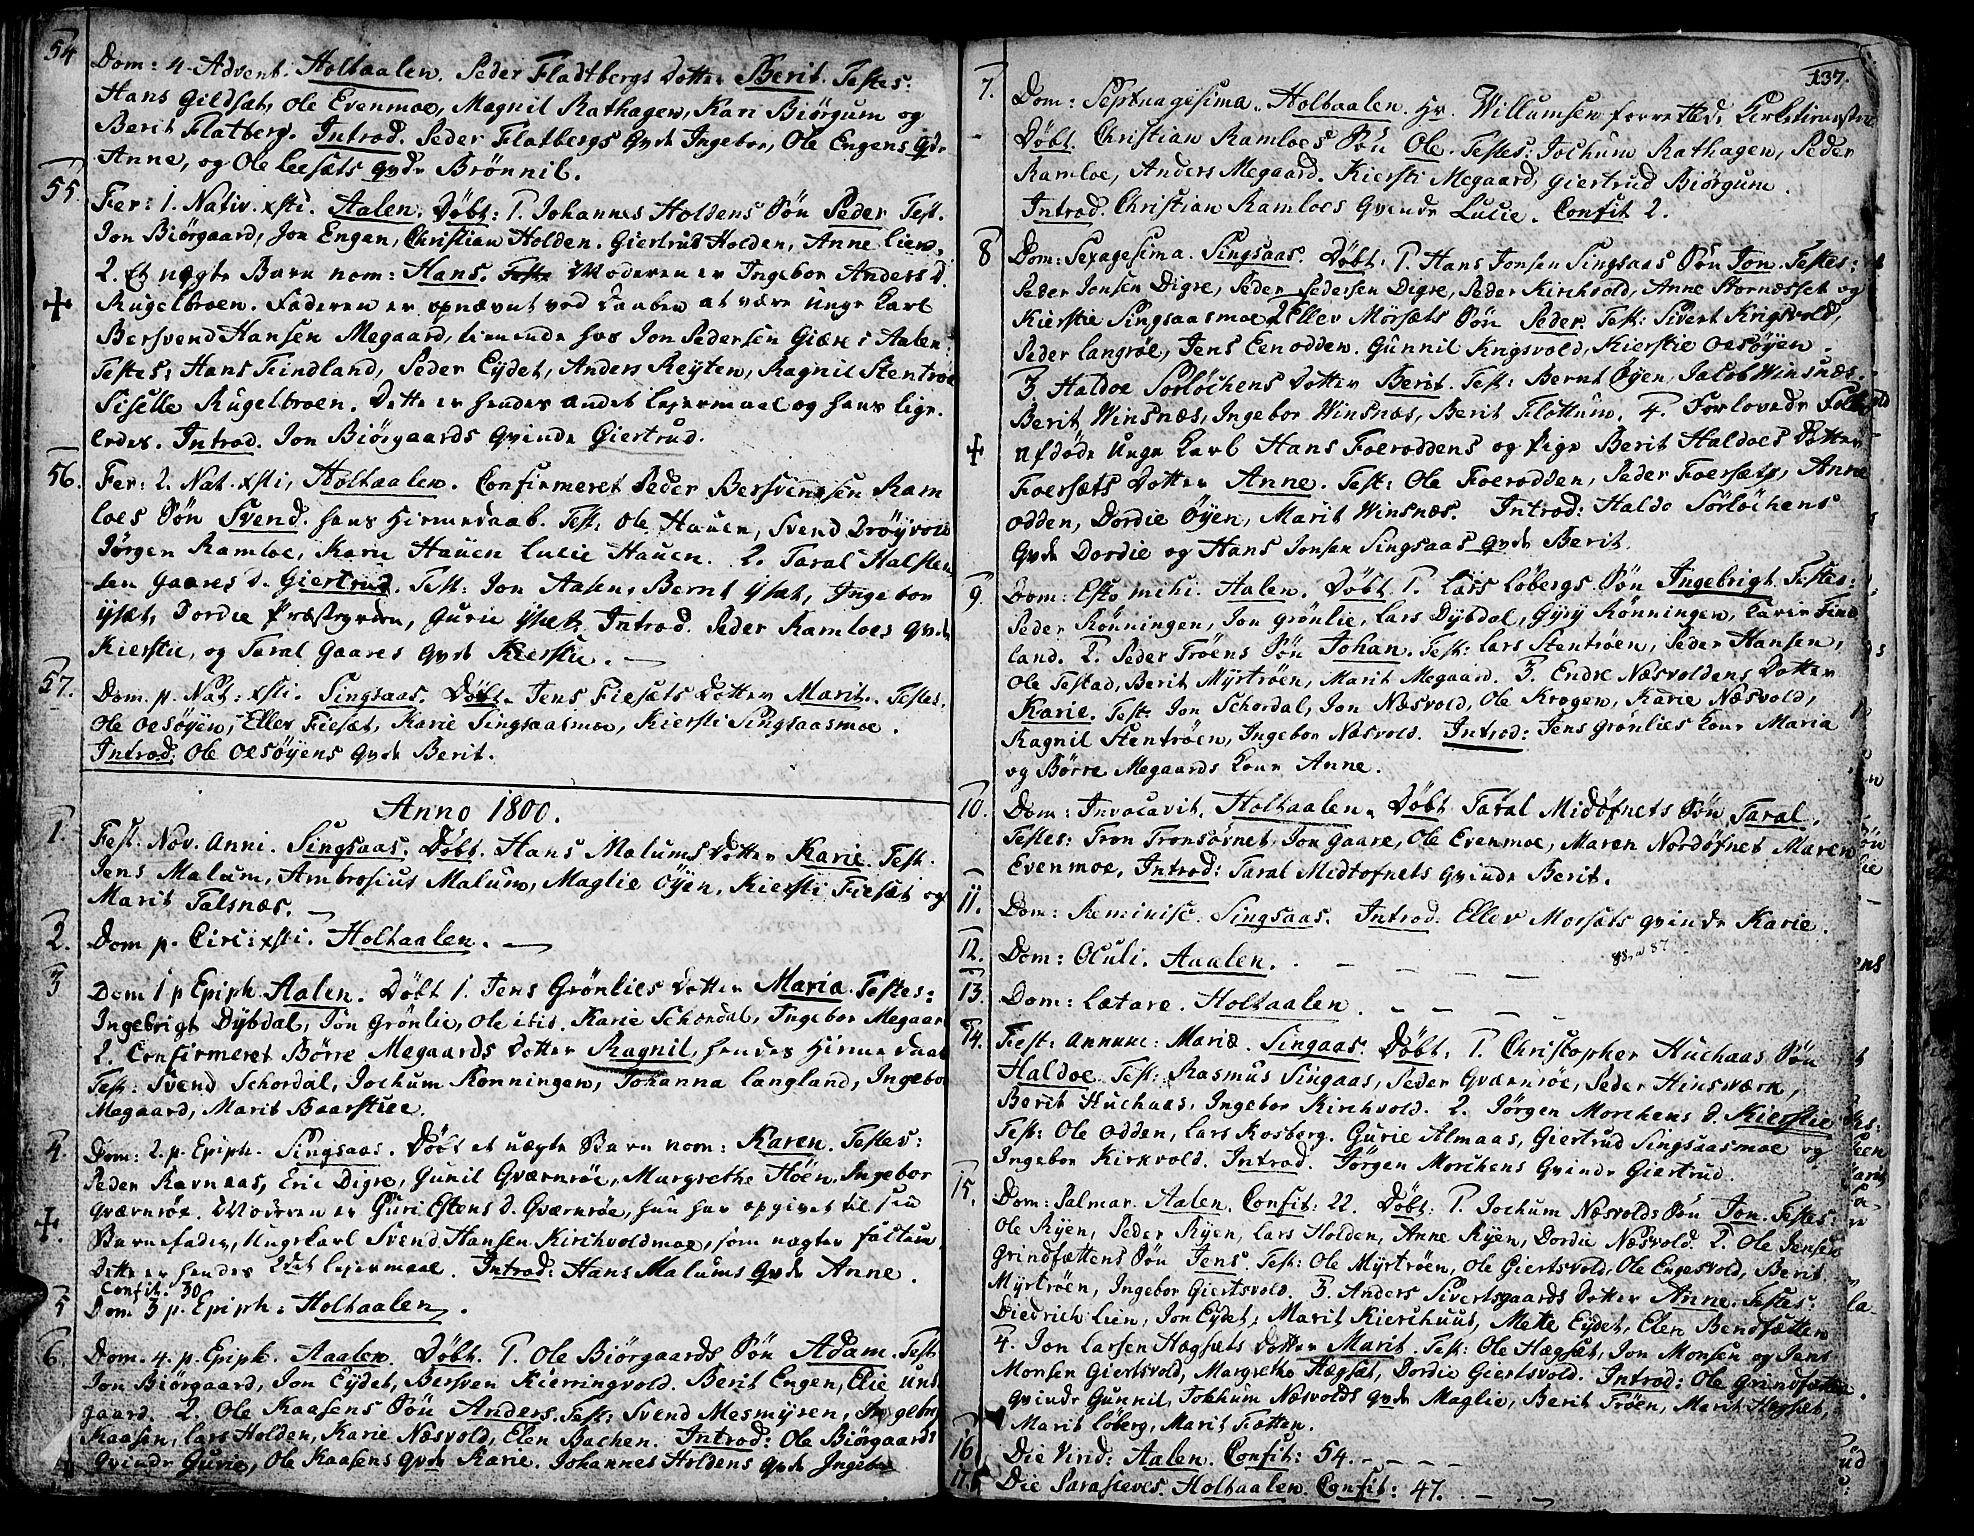 54 Dom: 4 Advent. Holtaalen. Peder Fladtbergs Dotter Berit. Testes:
Hans Gildsæt, Ole Evenmoe, Magnil Rathagen, Kari Biörgum og
Berit Flatberg. Introd. Peder Flatbergs Qvde Ingebor, Ole Engens Qvd.
Anne, og Ole Leesæts qvde Brönnil.
55. Fer: 1. Nativ. xsti. Aalen. Döbt: 1. Johannes Holdens Sön Peder Test.
Jon Biörgaard, Jon Engen, Christian Holden. Giertrud Holden, Anne Lien.
2. Et uægte Barn nom: Hans. Moderen er Ingebor Anders D.
Rugelbroen. Faderen er opnævnt ved Daaben at være Unge Karl
Bersvend Hansen Megaard, tienende hos Jon Pedersen Giære i Aalen.
Testes: Hans Findland, Peder Eydet, Anders Reyten, Ragnil Stentroe
Siselle Rugelbroen. Dette er hendes andet Lejermaal og hans lige-
ledes. Introd. Jon Biörgaards Qvinde Giertrud.
56. Fer: 2. Nat. xsti, Holtaalen. Confirmeret Peder Bersvendsen Ram
loes Sön Svend. hans Hiemedaab. Test: Ole Hauen, Svend Dröyvold
Jörgen Ramloe, Karie Hauen Lucie Hauen. 2. Taral Halsten
sen Gaares D. Giertrud. Test: Jon Aasen, Bernt Ysæt, Ingebor
Ysæt, Dordie Præstgrden, Gurie Ysæt. Introd. Peder Ramloes Qvde
Kierstie, og Taral Gaares Qvde Kierstie. —
57. Dom. p. Nat: xsti. Singsaas. Döbt. Jens Fiesæts Dotter Marit. Testes.
Ole Oesöyen, Ellev Fiesæt, Karie Singsaasmoe, Kiersti Singsaasmoe.
Introd: Ole Oesöyens Qvde Berit.
Anno 1800.
1. Fest. Nov. Anni. Singsaas. Döbt. Hans Malums Dotter Karie. Test.
Jens Malum, Ambrosius Malum, Maglie Öyen, Kiersti Fiesæt og
Marit Talsnæs. —
2. Dom p. Circ: xsti. Holtaalen. —
3 Dom 1 p Epiph. Aalen. Döbt 1. Jens Grönlies Dotter Maria. Testes:
Ingebrigt Dybdal, Jon Grönlie, Ole ibid. Karie Schordal, Ingebor Megaard
2. Confirmeret Börre Megaards Dotter Ragnil, hendes Hiemedaab
Test: Svend Schordal, Jochum Rönningen, Johanna Langland, Ingebor
Megaard, Marit Baarstiee.
4. Dom: 2. p. Epiph. Singsaas. Döbt et uægte Barn nom: Karen. Testes:
Peder Ravnaas, Eric Digre, Gunil Qværnröe, Margrethe Höen, Ingebor
Qværnröe. Moderen er Guri Estens D. Qværnröe, hun har opgivet til sin
Barnefader, Ungekarl Svend Hansen Kirchvoldmoe, som nægter factum
Dette er hendes 2det Lejermaal. Introd: Hans Malums Qvde Anne.
Confit. 30.
5 Dom 3 p. Epiph. Holtaalen.
6. Dom. 4. p. Epiph. Aalen. Döbt. 1. Ole Biörgaards Sön Adam. Test.
Jon Biörgaard, Jon Eydet, Bersven Kierringvold. Berit Engen, Elie Und
gaard. 2. Ole Kaasens Sön Anders. Test: Svend Mesmyren, Ingebor
Kaasen, Lars Holden, Karie Næsvold, Elen Bachen. Introd: Ole Biörgaards
Qvinde Gurie, Ole Kaasens Qvde Karie. Johannes Holdens Qvde Ingebor
137.
7. Dom: Septuagesima. Holtaalen. Hr. Willumsen forrettede
Döbt. Christian Ramloes Sön Ole. Testes: Jochum Rathagen, Peder
Ramloe, Anders Megaard. Kiersti Megaard, Giertrud Biörgum.
Introd. Christian Ramloes Qvinde Lucie. Confit 2.
8 Dom: Sexagesima. Singsaas. Döbt. 1. Hans Jonsen Singsaas Sön Jon. Testes:
Peder Jonsen Digre, Peder Pedersen Digre, Peder Kirchvold, Anne Stornæsset og
Kierstie Singsaasmoe. 2 Ellev Mörsæts Sön Peder. Test: Sivert Krigsvold,
Peder Langröe, Jens Eenodden. Gunnil Krigsvold, Kierstie Oesöyen.
3. Haldoe Sörlöchens Dotter Berit. Test: Bernt Öyen, Jacob Winsnæs.
Berit Winsnæs, Ingebor Winsnæs, Berit Flottum. 4. Forlovede
afdöde Unge Karl Hans Foeroddens og Pige Berit Haldoes Dotter
Foersæts Dotter Anne. Test: Ole Foerodden, Peder Foersæts, Anne
odden, Dordie Öyen, Marit Winsnæs. Introd: Haldo Sörlöchens
Qvde Dordie og Hans Jonsen Singsaas Qvde Berit.
9 Dom: Esto mihi. Aalen. Döbt. 1. Lars Löbergs Sön Ingebrigt. Testes:
Peder Rönningen, Jon Grönlie, Lars Dybdal, Gyry Rönningen, Karen Find
land. 2. Peder Tröens Sön Johan. Test: Lars Stentröen, Peder Hansen,
Ole Testad, Berit Myrtröen, Marit Megaard. 3. Endre Næsvoldens Dotter
Karie. Test: Jon Schordal, Jon Næsvold, Ole Krogen, Karie Næsvold,
Ragnil Stentröen, Ingebor Næsvold. Introd: Jens Grönlies Kone Maria
og Börre Megaards Kone Anne.
10. Dom: Invocavit. Holtaalen. Döbt Taral Midöfnets Sön Taral.
Testes: Tron Tronsövnet, Jon Gaare, Ole Evenmoe, Maren Nordöfnet Maren
Evenmoe, Introd: Taral Midtofnets Qvinde Berit.
11. Dom: Reminisc. Singsaas. Introd. Ellev Morsæts Qvinde Karie.
12. Dom: Oculi. Aaalen.
13. Dom: Lætare. Holtaalen.
14. Fest: Annunc: Mariæ. Singsaas. Döbt. 1. Christopher Huchaas Sön
Haldoe. Test: Rasmus Singaas, Peder Qværnröe, Peder Hinsværk,
Berit Huchaas, Ingebor Kirchvold. 2. Jörgen Morchens D. Kierstie
Test: Ole Odden, Lars Rosberg. Gurie Almaas, Giertrud Singsaasmoe og
Ingebor Kirkvold. Introd. Jörgen Morchens Qvinde Giertrud.
15. Dom: Palmar. Aalen. Confit: 22. Döbt: 1. Jochum Næsvolds Sön Jon. Testes:
Ole Ryen, Peder Ryen, Lars Holden, Anne Ryen, Dordie Næsvold. 2. Ole Jensen
Grindfættens Sön Jens. Test: Ole Myrtröen, Ole Giertsvold, Ole Engesvold, Berit
Myrtröen, Ingebor Giertsvold. 3. Anders Sivertsgaards Dotter Anne. Testes:
Diedrich Lien, Jon Eydet, Marit Kierchuus, Mette Eydet, Elen Bendfætten
4. Jon Larsen Hægsæts Dotter Marit. Test: Ole Hægsæt, Jon Monsen og Jens
Monsen Giertsvold, Margrethe Hægsæt, Dordie Giertsvold. Introd: Ole Grindfætten
Qvinde Gunnil, Jokhum Næsvolds Qvde Maglie, Berit Tröen, Marit Hegsæt,
Marit Löberg, Marit Fætten.
16 Die Virid: Aalen. Confit: 54.
17. Die Parasceves. Holtaalen. Confit: 47.